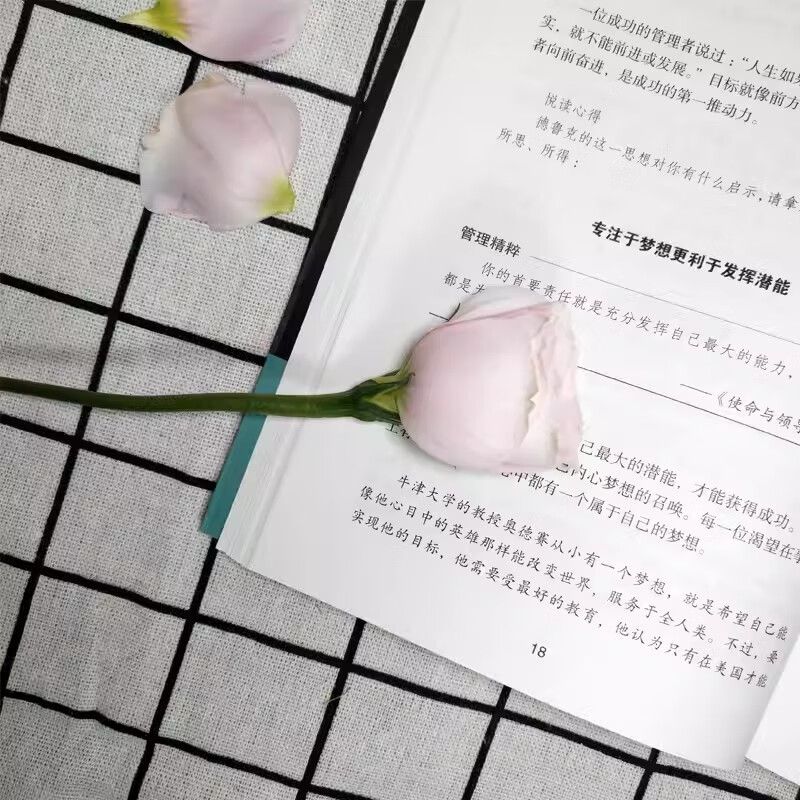 一位成功的管理者说过：“人生如
实，就不能前进或发展。”目标就像前方
者向前奋进，是成功的第一推动力。
悦读心得
德鲁克的这一思想对你有什么启示，请拿
所思、所得：
专注于梦想更利于发挥潜能
管理精粹
你的首要责任就是充分发挥自己最大的能力，
都是为
——《使命与领导
己最大的潜能，才能获得成功。
己内心梦想的召唤。每一位渴望在
心中都有一个属于自己的梦想。
牛津大学的教授奥德赛从小有一个梦想，就是希望自己能
像他心目中的英雄那样能改变世界，服务于全人类。不过，要
实现他的目标，他需要受最好的教育，他认为只有在美国才能
18